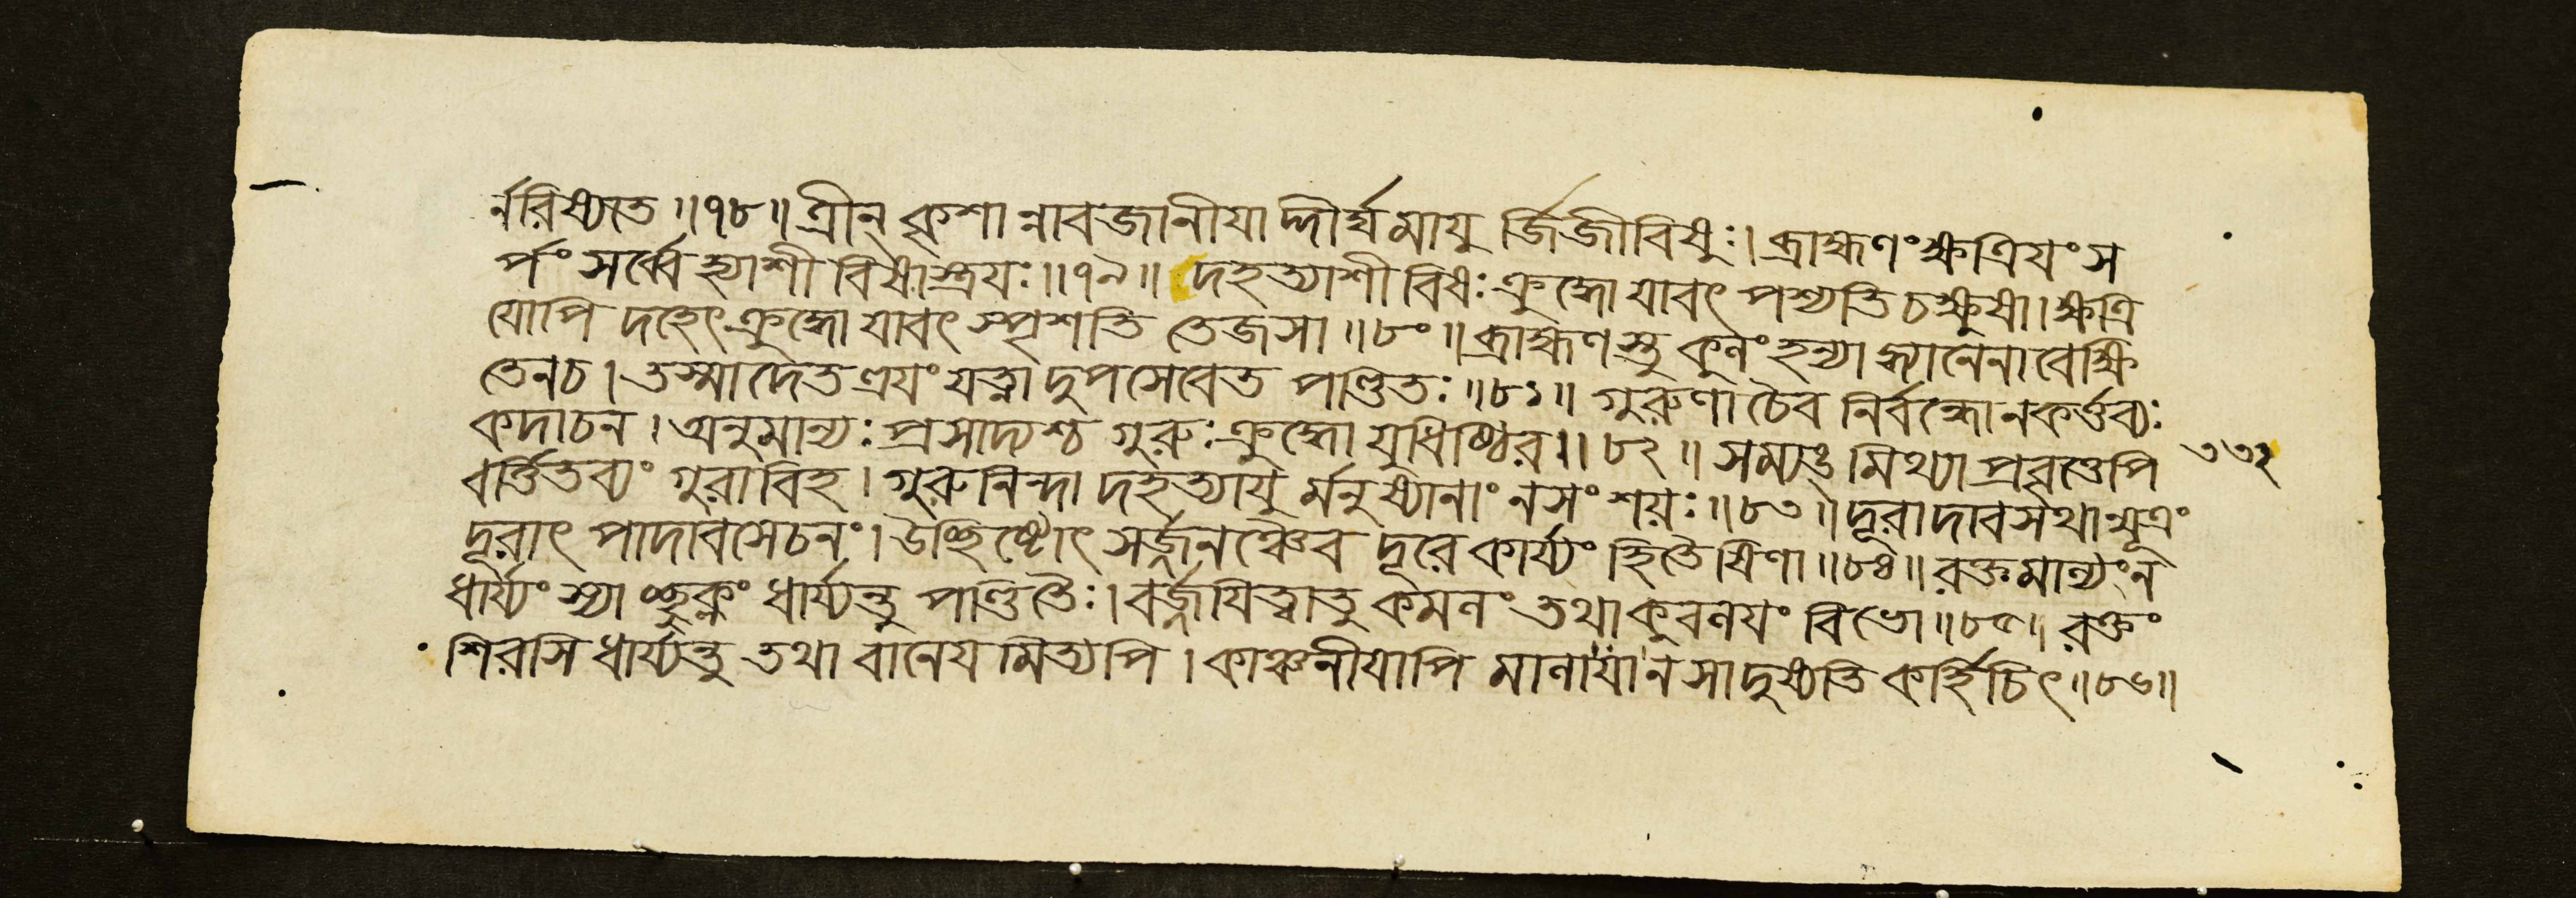 র্নরিষ্যতি ॥৭৮॥ ত্রীন্ কৃশা ন্নাবজানীযা দ্দীর্ঘমাযু র্জিজীবিষুঃ। ব্রাহ্মণং ক্ষত্রিযং স
র্পং সর্ব্বে হ্যাশী বিষাস্ত্রযঃ ॥৭৯॥ দহত্যাশী বিষঃ ক্রুদ্ধো যাবৎ পশ্যতি চক্ষুষা। ক্ষত্রি
যোপি দহেৎ ক্রুদ্ধো যাবৎ স্পৃশতি তেজসা ॥৮০॥ ব্রাহ্মণস্তু কুলং হন্যা দ্ধ্যানেনাবেক্ষি
তেনচ। তস্মাদেতত্রযং যত্না দুপসেবেত পণ্ডিতঃ ॥৮১॥ গুরুণা চৈব নির্বন্ধোনকর্ত্তব্যঃ
কদাচন। অনুমান্যঃ প্রসাদ্যশ্চ গুরুঃ ক্রুদ্ধো যুধিষ্ঠির॥ ৮২॥ সম্যঙ্ মিথ্যা প্রবৃত্তেপি
৩৩২
বর্ত্তিতব্যং গুরাবিহ। গুরুনিন্দা দহত্যাযু র্মনুষ্যানাং নসংশয়ঃ ॥৮৩॥ দূরাদাবসথান্মূত্রং
দূরাৎ পাদাবসেচনং। উচ্ছিষ্টোৎ সর্জ্জনঞ্চৈব দূরে কার্য্যং হিতৈষিণা ॥৮৪॥ রক্তমাল্যংন
ধার্য্যং স্যা চ্ছুক্লং ধার্য্যন্তু পণ্ডিতৈঃ। বর্জ্জযিত্বাতু কমলং তথা কুবলযং বিভো ॥৮৫॥ রক্তং
শিরসি ধার্য্যন্তু তথা বানেয মিত্যপি। কাঞ্চনীযাপি মালাযা ন সাদুষ্যতি কর্হিচিৎ ॥৮৬॥